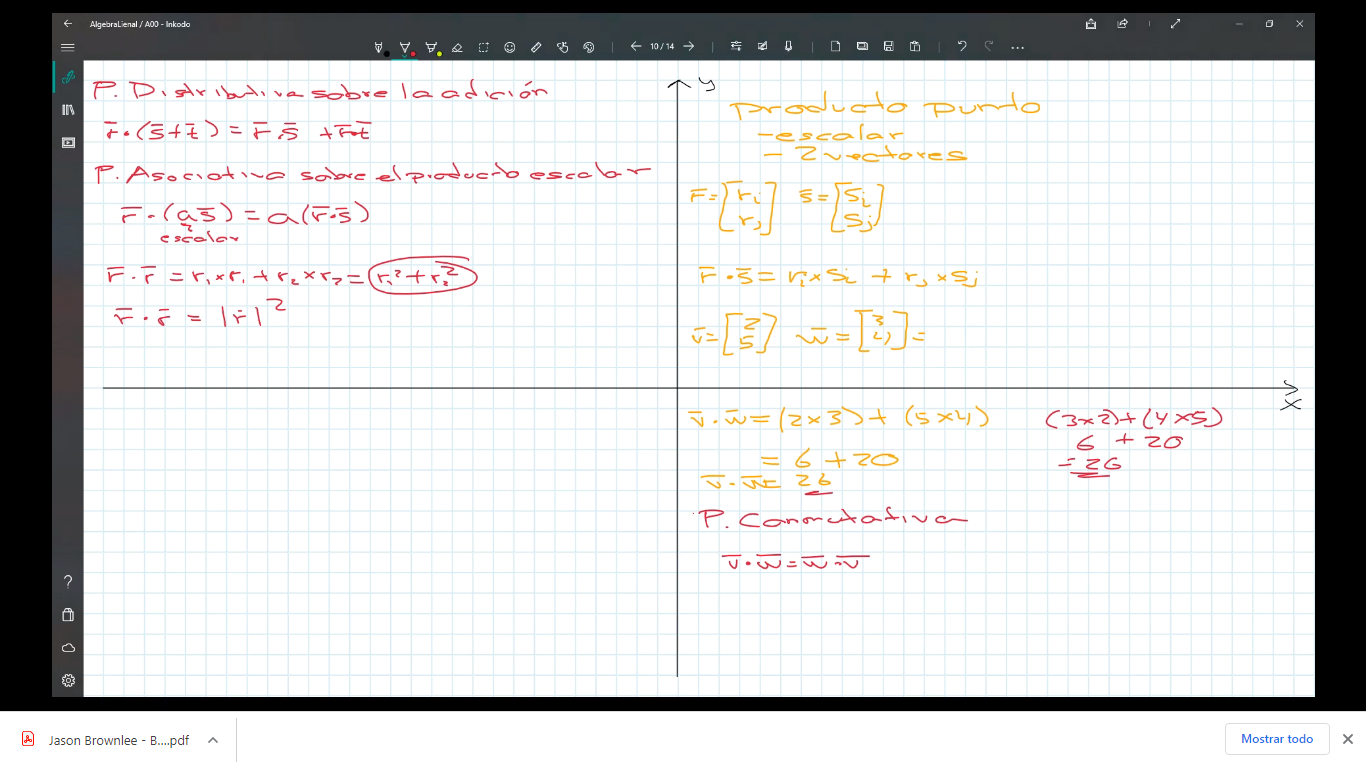 AlgebraLienal / A00 - Inkodo
10 / 14
P. Distributiva sobre la adición
r̅·(s̅+t̅) = r̅·s̅ + r̅·t̅
P. Asociativa sobre el producto escalar
r̅·(as̅) = a(r̅·s̅)
escalar
r̅·r̅ = r₁×r₁ + r₂×r₂ = r₁² + r₂²
r̅·r̅ = |r|²
y
producto punto
- escalar
- 2 vectores
r̅ = [ri rj] s̅ = [si sj]
r̅·s̅ = ri×si + rj×sj
v̅ = [2 5] w̅ = [3 4] =
x
v̅·w̅ = (2×3) + (5×4)
= 6 + 20
v̅·w̅ = 26
(3×2)+(4×5)
6 + 20
= 26
P. Conmutativa
v̅·w̅ = w̅·v̅
Jason Brownlee - B....pdf
Mostrar todo